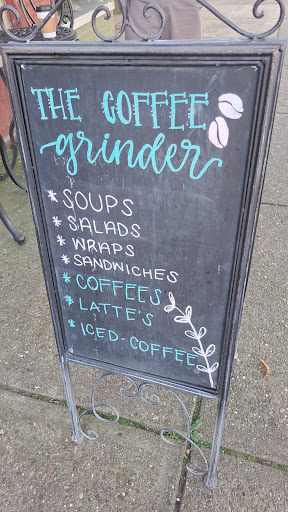 THE COFFEE
grinder
* SOUPS
* SALADS
* WRAPS
* SANDWICHES
* COFFEES
* LATTE'S
* ICED-COFFEE